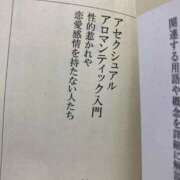 関連する用語や概念を詳細に解説
アセクシュアル
アロマンティック入門
性的惹かれや
恋愛感情を持たない人たち